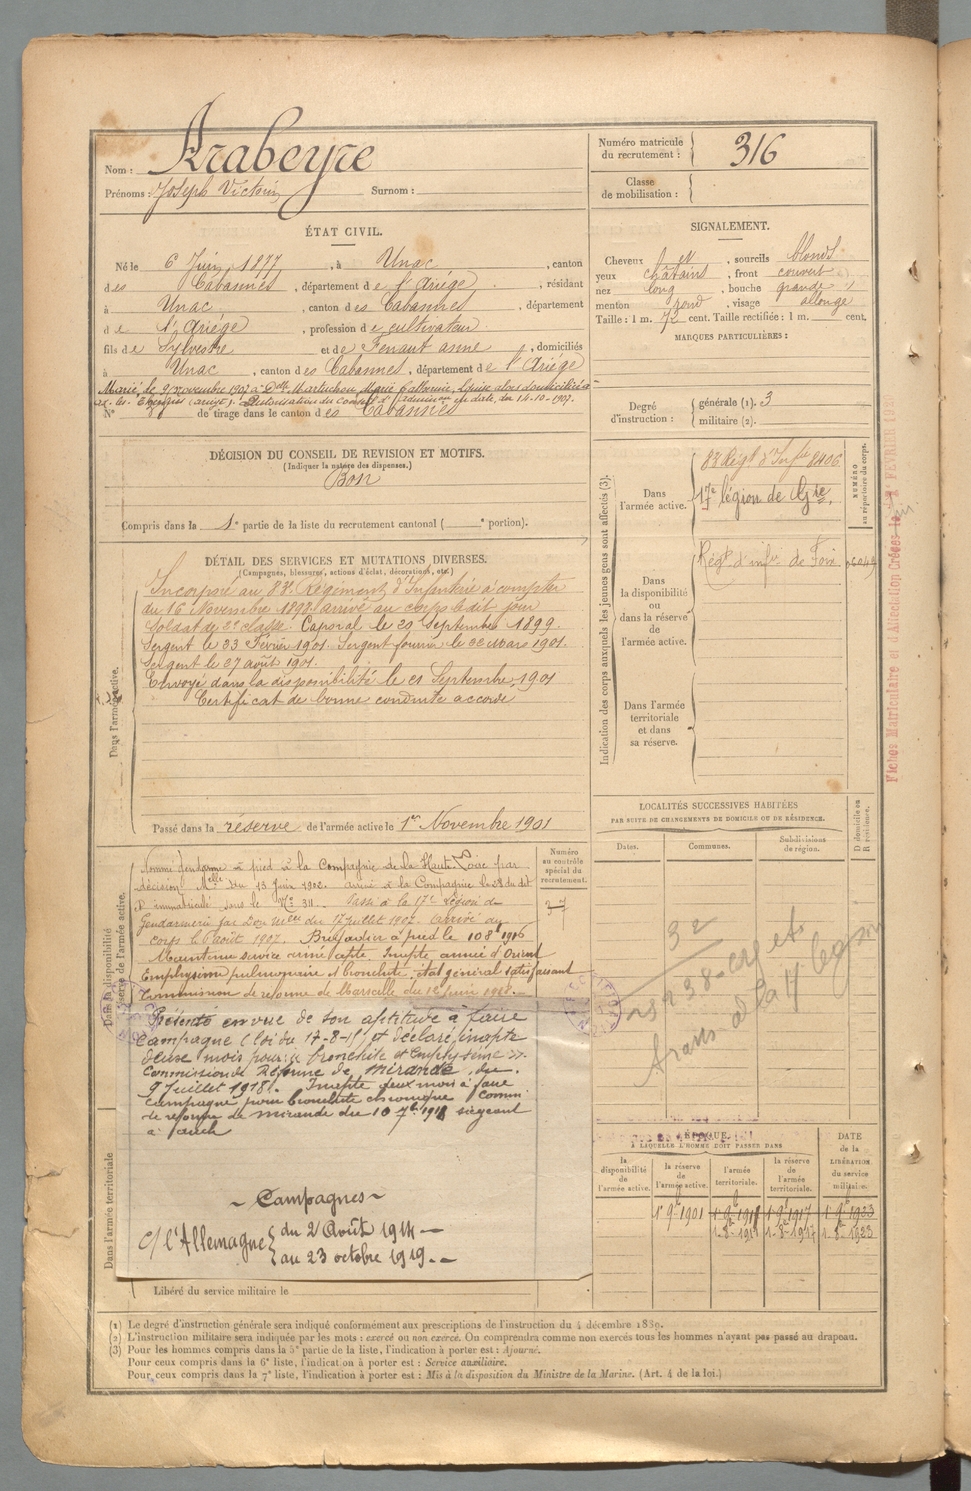 Nom : Arabeyre
Prénoms : Joseph Victorin Surnom :
Numéro matricule du recrutement : 316
Classe de mobilisation :
ÉTAT CIVIL.
Né le 6 Juin 1877, à Unac, canton
des Cabannes, département de l'Ariège, résidant
à Unac, canton des Cabannes, département
de l'Ariège, profession de cultivateur
fils de Sylvestre et de Fenaut anne, domiciliés
à Unac, canton des Cabannes, département de l'Ariège
Marié le 9 novembre 1907 à Delle Marie Louise alors domiciliée
Autorisation du Conseil d' en date du 14-10-1907.
N° de tirage dans le canton des Cabannes
SIGNALEMENT.
Cheveux, sourcils blonds
yeux châtains, front couvert
nez long, bouche grande
menton rond, visage allongé
Taille : 1 m. 72 cent. Taille rectifiée : 1 m. cent.
MARQUES PARTICULIÈRES :
Degré d'instruction : générale (1). 3
militaire (2).
DÉCISION DU CONSEIL DE REVISION ET MOTIFS.
(Indiquer la nature des dispenses.)
Bon
Compris dans la 1e partie de la liste du recrutement cantonal ( e portion).
DÉTAIL DES SERVICES ET MUTATIONS DIVERSES.
(Campagnes, blessures, actions d'éclat, décorations, etc.)
Dans l'armée active.
Incorporé au 83e Régiment d'Infanterie à compter
du 16 Novembre 1898 arrivé au corps le dit jour
Soldat de 2e classe. Caporal le 29 Septembre 1899.
Sergent le 23 Février 1901. Sergent fourrier le 22 Mars 1901.
Sergent le 27 août 1901.
Envoyé dans la disponibilité le Septembre 1901
Certificat de bonne conduite accordé
Passé dans la réserve de l'armée active le 1er Novembre 1901
Indication des corps auxquels les jeunes gens sont affectés (3).
NUMÉRO au répertoire du corps.
Dans l'armée active.
83 Régt d'Infie 8406
17e légion de Gie
Dans la disponibilité ou dans la réserve de l'armée active.
Régt d'infie de Foix
Dans l'armée territoriale et dans sa réserve.
Fiches Matriculaire et d'Affectation Créées le FÉVRIER
LOCALITÉS SUCCESSIVES HABITÉES
PAR SUITE DE CHANGEMENTS DE DOMICILE OU DE RÉSIDENCE.
Dates. Communes. Subdivisions de région. D domicile ou R résidence.
Dans la disponibilité
réserve de l'armée active.
Numéro au contrôle spécial du recrutement.
37
Nommé gendarme à pied à la Compagnie de la Haute Loire par
décision Melle du 13 Juin 1902. arrivé à la Compagnie le 28 du dit
immatriculé sous le No 311. Passé à la 17e Légion de
Gendarmerie par Don Melle du 17 juillet 1907. arrivé au
corps le 6 août 1907. Brigadier à pied le 10 8bre 1916
Maintenu service armé apte. Inapte armée d'Orient
Emphysème pulmonaire et bronchite, état général satisfaisant
Commission de réforme de Marseille du 12 juin 1918.
Présenté en vue de son aptitude à faire
campagne (loi du 17-8-15) et déclaré inapte
deux mois pour « bronchite et emphysème ».
Commission de Réforme de Mirande, du
9 Juillet 1918. Inapte deux mois à faire
campagne pour bronchite chronique Comm
de réforme de Mirande du 10 7bre 1918 siégeant
à Auch
~ Campagnes ~
c/ l'Allemagne { du 2 Août 1914
au 23 octobre 1919.
Dans l'armée territoriale
Libéré du service militaire le
ÉPOQUE
À LAQUELLE L'HOMME DOIT PASSER DANS
la disponibilité de l'armée active.
la réserve de l'armée active.
l'armée territoriale.
la réserve de l'armée territoriale.
DATE de la LIBÉRATION du service militaire.
1er 9bre 1901
(1) Le degré d'instruction générale sera indiqué conformément aux prescriptions de l'instruction du 4 décembre 1889.
(2) L'instruction militaire sera indiquée par les mots : exercé ou non exercé. On comprendra comme non exercés tous les hommes n'ayant pas passé au drapeau.
(3) Pour les hommes compris dans la 5e partie de la liste, l'indication à porter est : Ajourné.
Pour ceux compris dans la 6e liste, l'indication à porter est : Service auxiliaire.
Pour ceux compris dans la 7e liste, l'indication à porter est : Mis à la disposition du Ministre de la Marine. (Art. 4 de la loi.)